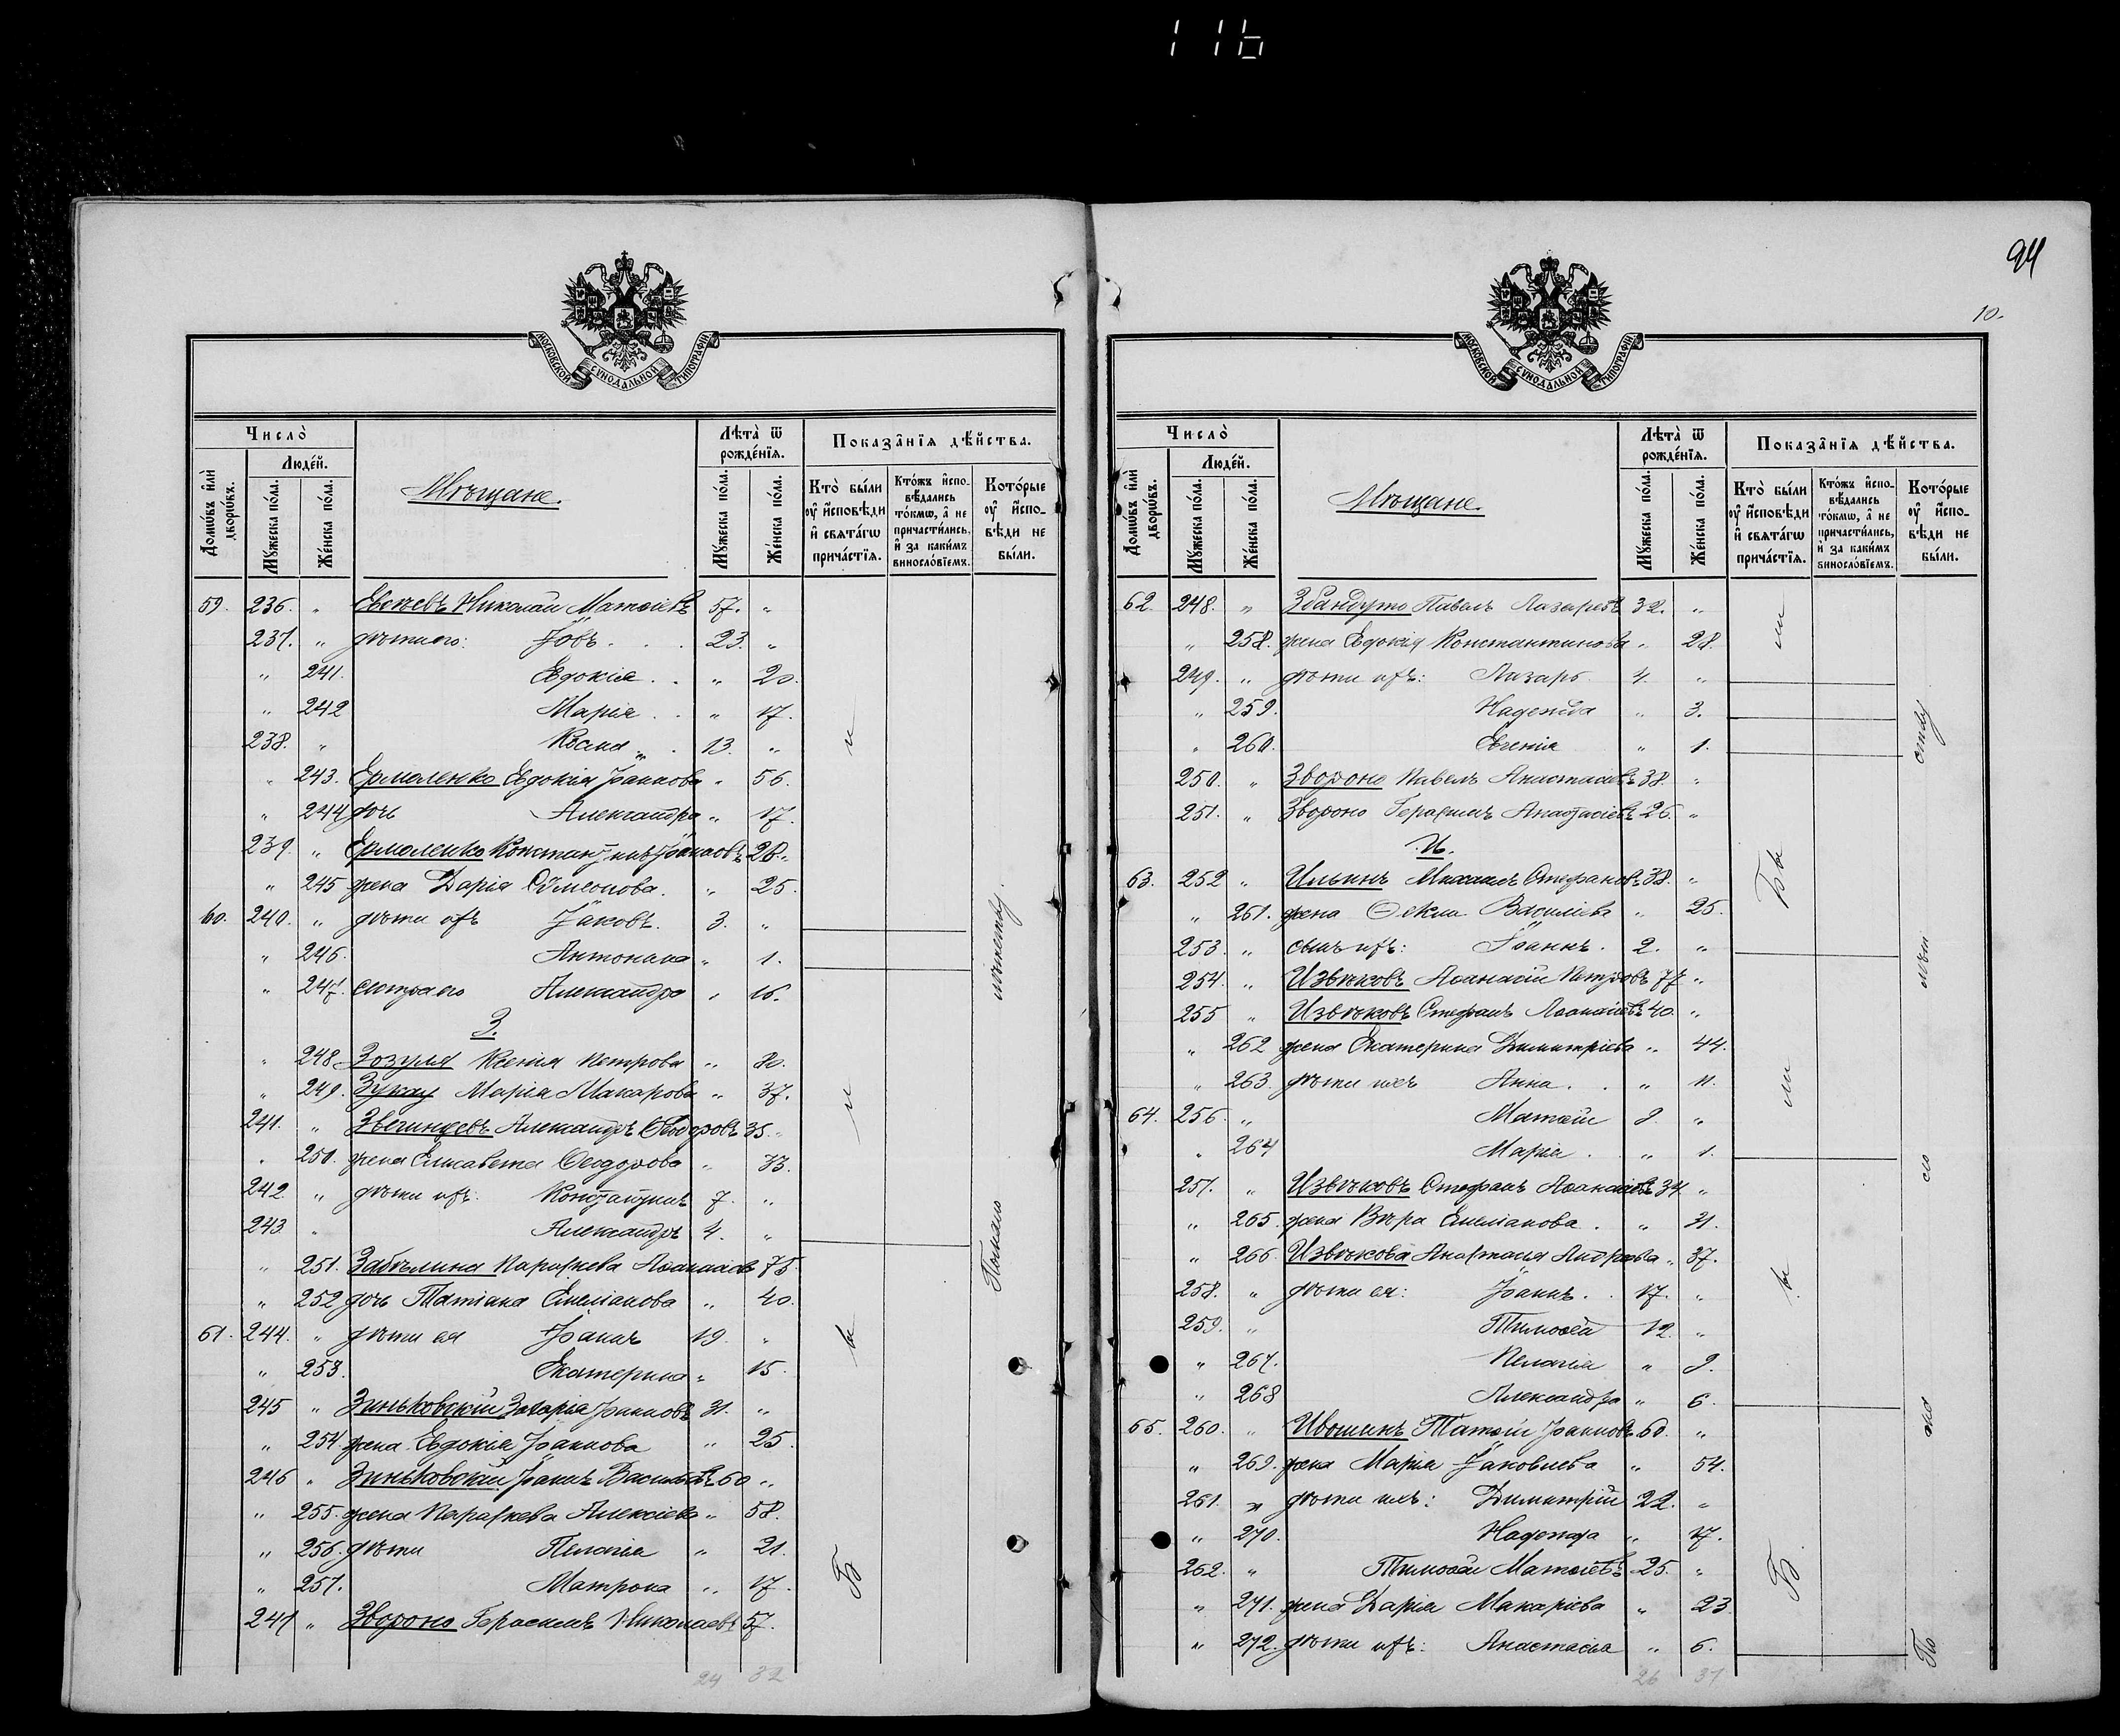 116
МОСКОВСКОЙ СѴНОДАЛЬНОЙ ТИПОГРАФІИ
Число̀
Люде́й.
Домѡ́въ и҆лѝ дворѡ́въ.
Мꙋ́жеска по́ла.
Же́нска по́ла.
Мѣщане.
Лѣта̀ ѿ рожде́нїѧ.
Мꙋ́жеска по́ла.
Же́нска по́ла.
Показа̑нїѧ дѣ́йства.
Кто̀ бы́ли оу҆ и҆сповѣ́ди и҆ свѧта́гѡ прича́стїѧ.
Кто́жъ и҆сповѣ́дались то́кмѡ, а҆ не причасти́лись, и҆ за каки́мъ винослóвїемъ.
Кото́рые оу҆ и҆сповѣ́ди не бы́ли.
59. 236. " Евсѣевъ Николай Матѳіевъ 57. "
237. " дѣти его: Іовъ . . . 23. "
" 241. Евдокія . . " 20.
" 242 Марія . . " 17.
238. " 13. "
" 243. Ермоленко Евдокія Іоаннова " 56.
" 244 дочь Александра " 17.
239. " Ермоленко Константинъ Іоанновъ 28. "
" 245 жена Дарія Сѵмеонова. " 25.
60. 240. " дѣти ихъ Іаковъ. 3. "
" 246. Антонина " 1.
" 247. сестра его Александра " 16.
З.
" 248 Зозуля Ксенія Петрова " 80.
" 249. Марія Макарова " 37.
241. " Звегинцевъ Александръ Ѳеодоровъ 35. "
" 250. жена Елисавета Ѳеодорова " 33.
242 " дѣти ихъ: Константинъ 7. "
243. " Александръ 4. "
" 251. Забѣлина Параскева Аѳанасіев 75.
" 252 дочь Татіана Емеліанова " 40.
61. 244. " дѣти ея Іоаннъ 19. "
" 253. Екатерина " 15.
245 " Зиньковскій Захарія Іоанновъ 31. "
" 254 жена Евдокія Іоаннова " 25.
246 " Зиньковскій Іоаннъ Васильевъ 60 "
" 255. жена Параскева Алексіева " 58.
" 256. дѣти Пелагія " 21.
" 257. Матрона " 17.
247 " Звороно Герасимъ Николаевъ 57.
24 32
94
10.
МОСКОВСКОЙ СѴНОДАЛЬНОЙ ТИПОГРАФІИ
Число̀
Люде́й.
Домѡ́въ и҆лѝ дворѡ́въ.
Мꙋ́жеска по́ла.
Же́нска по́ла.
Мѣщане.
Лѣта̀ ѿ рожде́нїѧ.
Мꙋ́жеска по́ла.
Же́нска по́ла.
Показа̑нїѧ дѣ́йства.
Кто̀ бы́ли оу҆ и҆сповѣ́ди и҆ свѧта́гѡ прича́стїѧ.
Кто́жъ и҆сповѣ́дались то́кмѡ, а҆ не причасти́лись, и҆ за каки́мъ винослóвїемъ.
Кото́рые оу҆ и҆сповѣ́ди не бы́ли.
62. 248. " Збандуто Павелъ Лазаревъ 32. "
" 258. жена Евдокія Константинова " 28.
249. " дѣти ихъ: Лазарь 4. "
" 259. Надежда " 3.
" 260. Евгенія " 1.
250. " Звороно Павелъ Анастасіевъ 38. "
251. " Звороно Герасимъ Анастасіевъ 26. "
И.
63. 252 " Ильинъ Михаилъ Стефановъ 38. "
" 261. жена Ѳекла Василіева " 25.
253. " сынъ ихъ: Іоаннъ. 2. "
254. " Извѣковъ Аѳанасій Петровъ 77 "
255 " Извѣковъ Стефанъ Аѳанасіевъ 40. "
" 262 жена Екатерина Димитріева " 44.
" 263. дѣти ихъ Анна. . " 11.
64. 256. " Матѳей 9. "
" 264 Марія . " 1.
257. " Извѣковъ Стефанъ Аѳанасіевъ 34. "
" 265. жена Вѣра Емеліанова . " 31.
" 266. Извѣкова Анастасія Андреева " 37.
258. " дѣти ея: Іоаннъ. . 17. "
259. " Тимоѳей 12. "
" 267. Пелагія " 9.
" 268 Александра " 6.
65. 260. " Ивошинъ Матѳей Іоанновъ 60. "
" 269. жена Марія Іаковлева " 54.
261. " дѣти ихъ: Димитрій 22. "
" 270. Надежда " 17.
262. " Тимоѳей Матѳіевъ 25. "
" 271. жена Дарія Макаріева " 23
" 272. дѣти ихъ: Анастасія " 6.
26 37